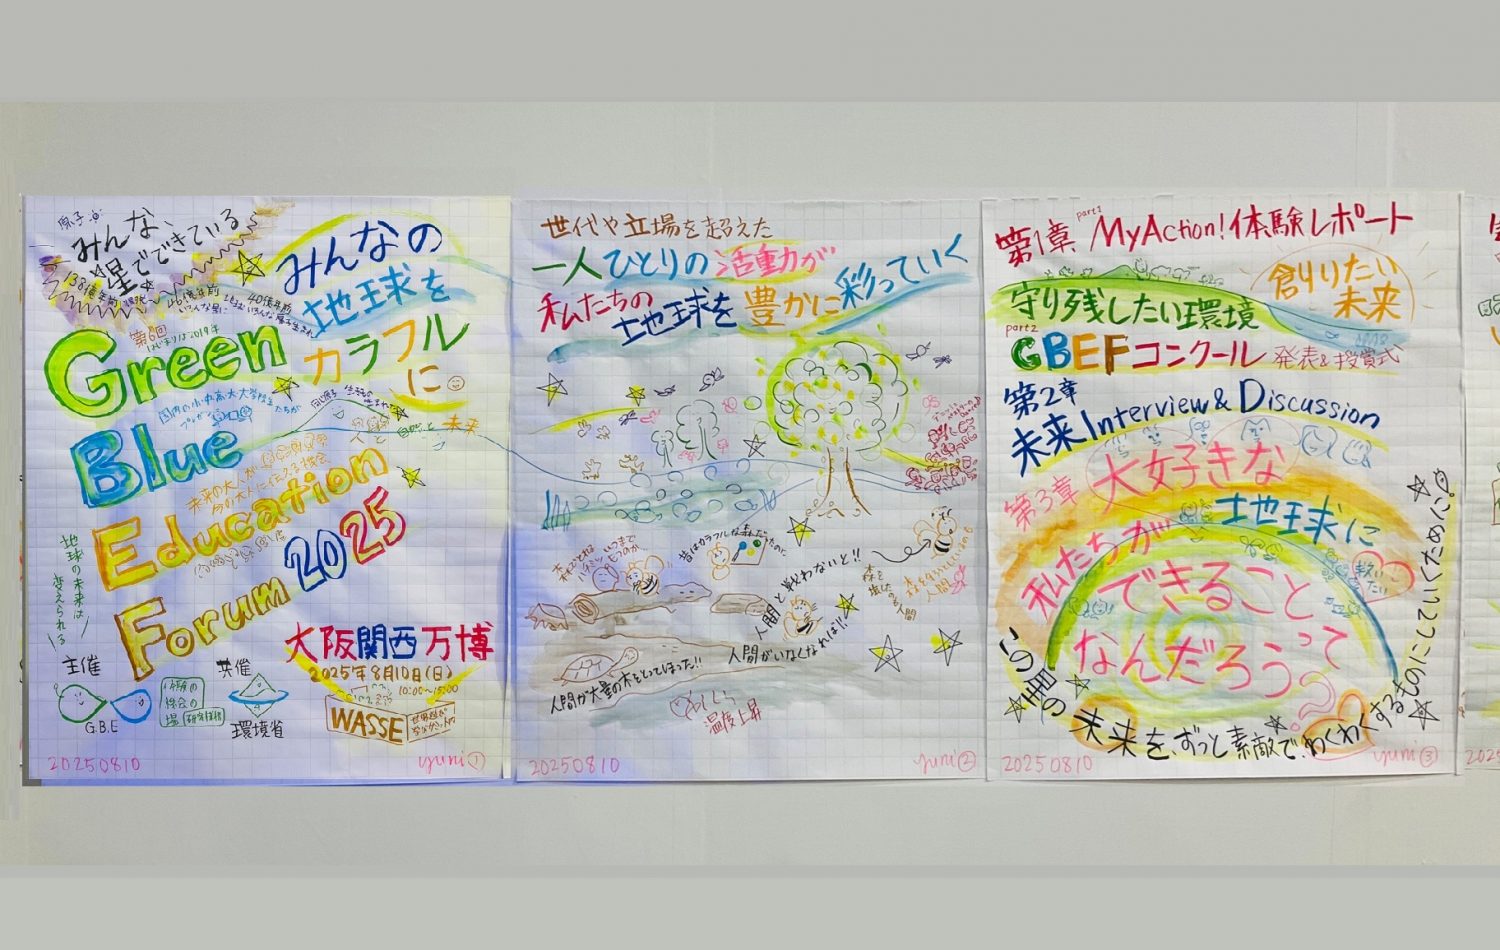 原子
みんな、
星でできている
138億年前
46億年前
40億年前
みんなの
地球を
カラフル
に
第6回
はじまりは2019年
Green
Blue
Education
Forum 2025
国内の小中高大大学校生たちが
未来の大人が
今の大人に伝える機会
未来
地球の未来は
変えられる
大阪関西万博
2025年8月10日(日)
10:00~15:00
主催
G.B.E
体験の
機会の
場
研究機構
共催
環境省
WASSE
20250810
yumi①
世代や立場を超えた
一人ひとりの活動が
私たちの地球を豊かに彩っていく
昔はカラフルな森だったのに
人間と戦わないと!!
人間がいなくなれば!!
森を
壊したのも
人間
人間
人間が大量の木をとってしまった!!
温度上昇
20250810
yumi②
第1章 part1 MyAction!体験レポート
守り残したい環境
創りたい
未来
part2
GBEFコンクール 発表&授賞式
第2章
未来Interview & Discussion
第3章 大好きな
地球に
私たちが
できること
なんだろうって?
この星の未来を、ずっと素敵で、わくわくするものにしていくために。
20250810
yumi③